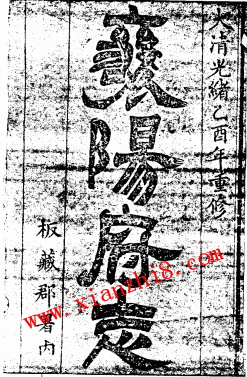 大清光緒乙酉年重修
襄陽府志
板藏郡署內
www.xianzhi8.com